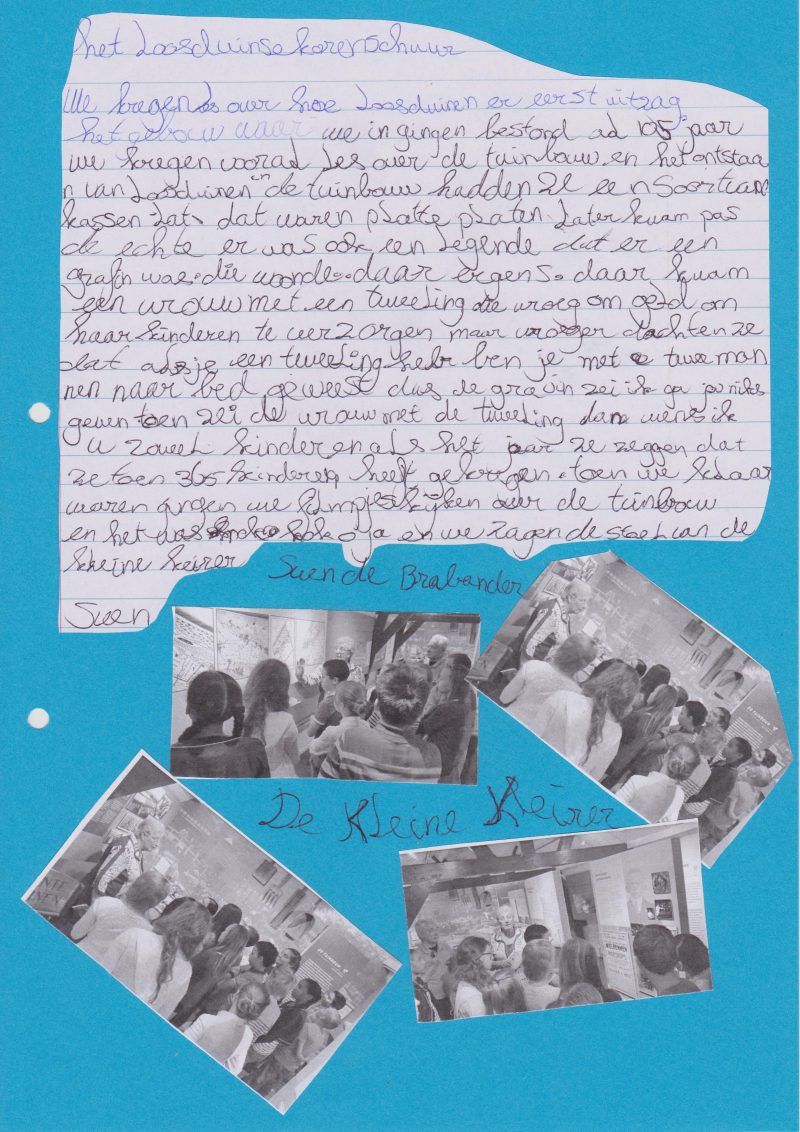 het Loosduinse korenschuur
We kregen les over hoe Loosduinen er eerst uitzag
het gebouw waar we in gingen bestond al 105 jaar
we kregen vooral les over de tuinbouw en het ontstaa
n van Loosduinen en de tuinbouw hadden ze een soort van
kassen dat waren platte platen Later kwam pas
de echte er was ook een Legende dat er een
grafin was die woonde daar ergens daar kwam
een vrouw met een tweeling die vroeg om geld om
haar kinderen te verzorgen maar vroeger dachten ze
dat als je een tweeling hebt ben je met twee man
nen naar bed geweest dus de gravin zei ik ga je niks
geven toen zei de vrouw met de tweeling dan wens ik
u zoveel kinderen als het jaar ze zeggen dat
ze toen 365 kinderen heeft gekregen toen we klaar
waren gingen we filmpjes kijken over de tuinbouw
en het was o ja en we zagen de stoel van de
kleine keizer
Swen de Brabander
Swen
De Kleine Keizer